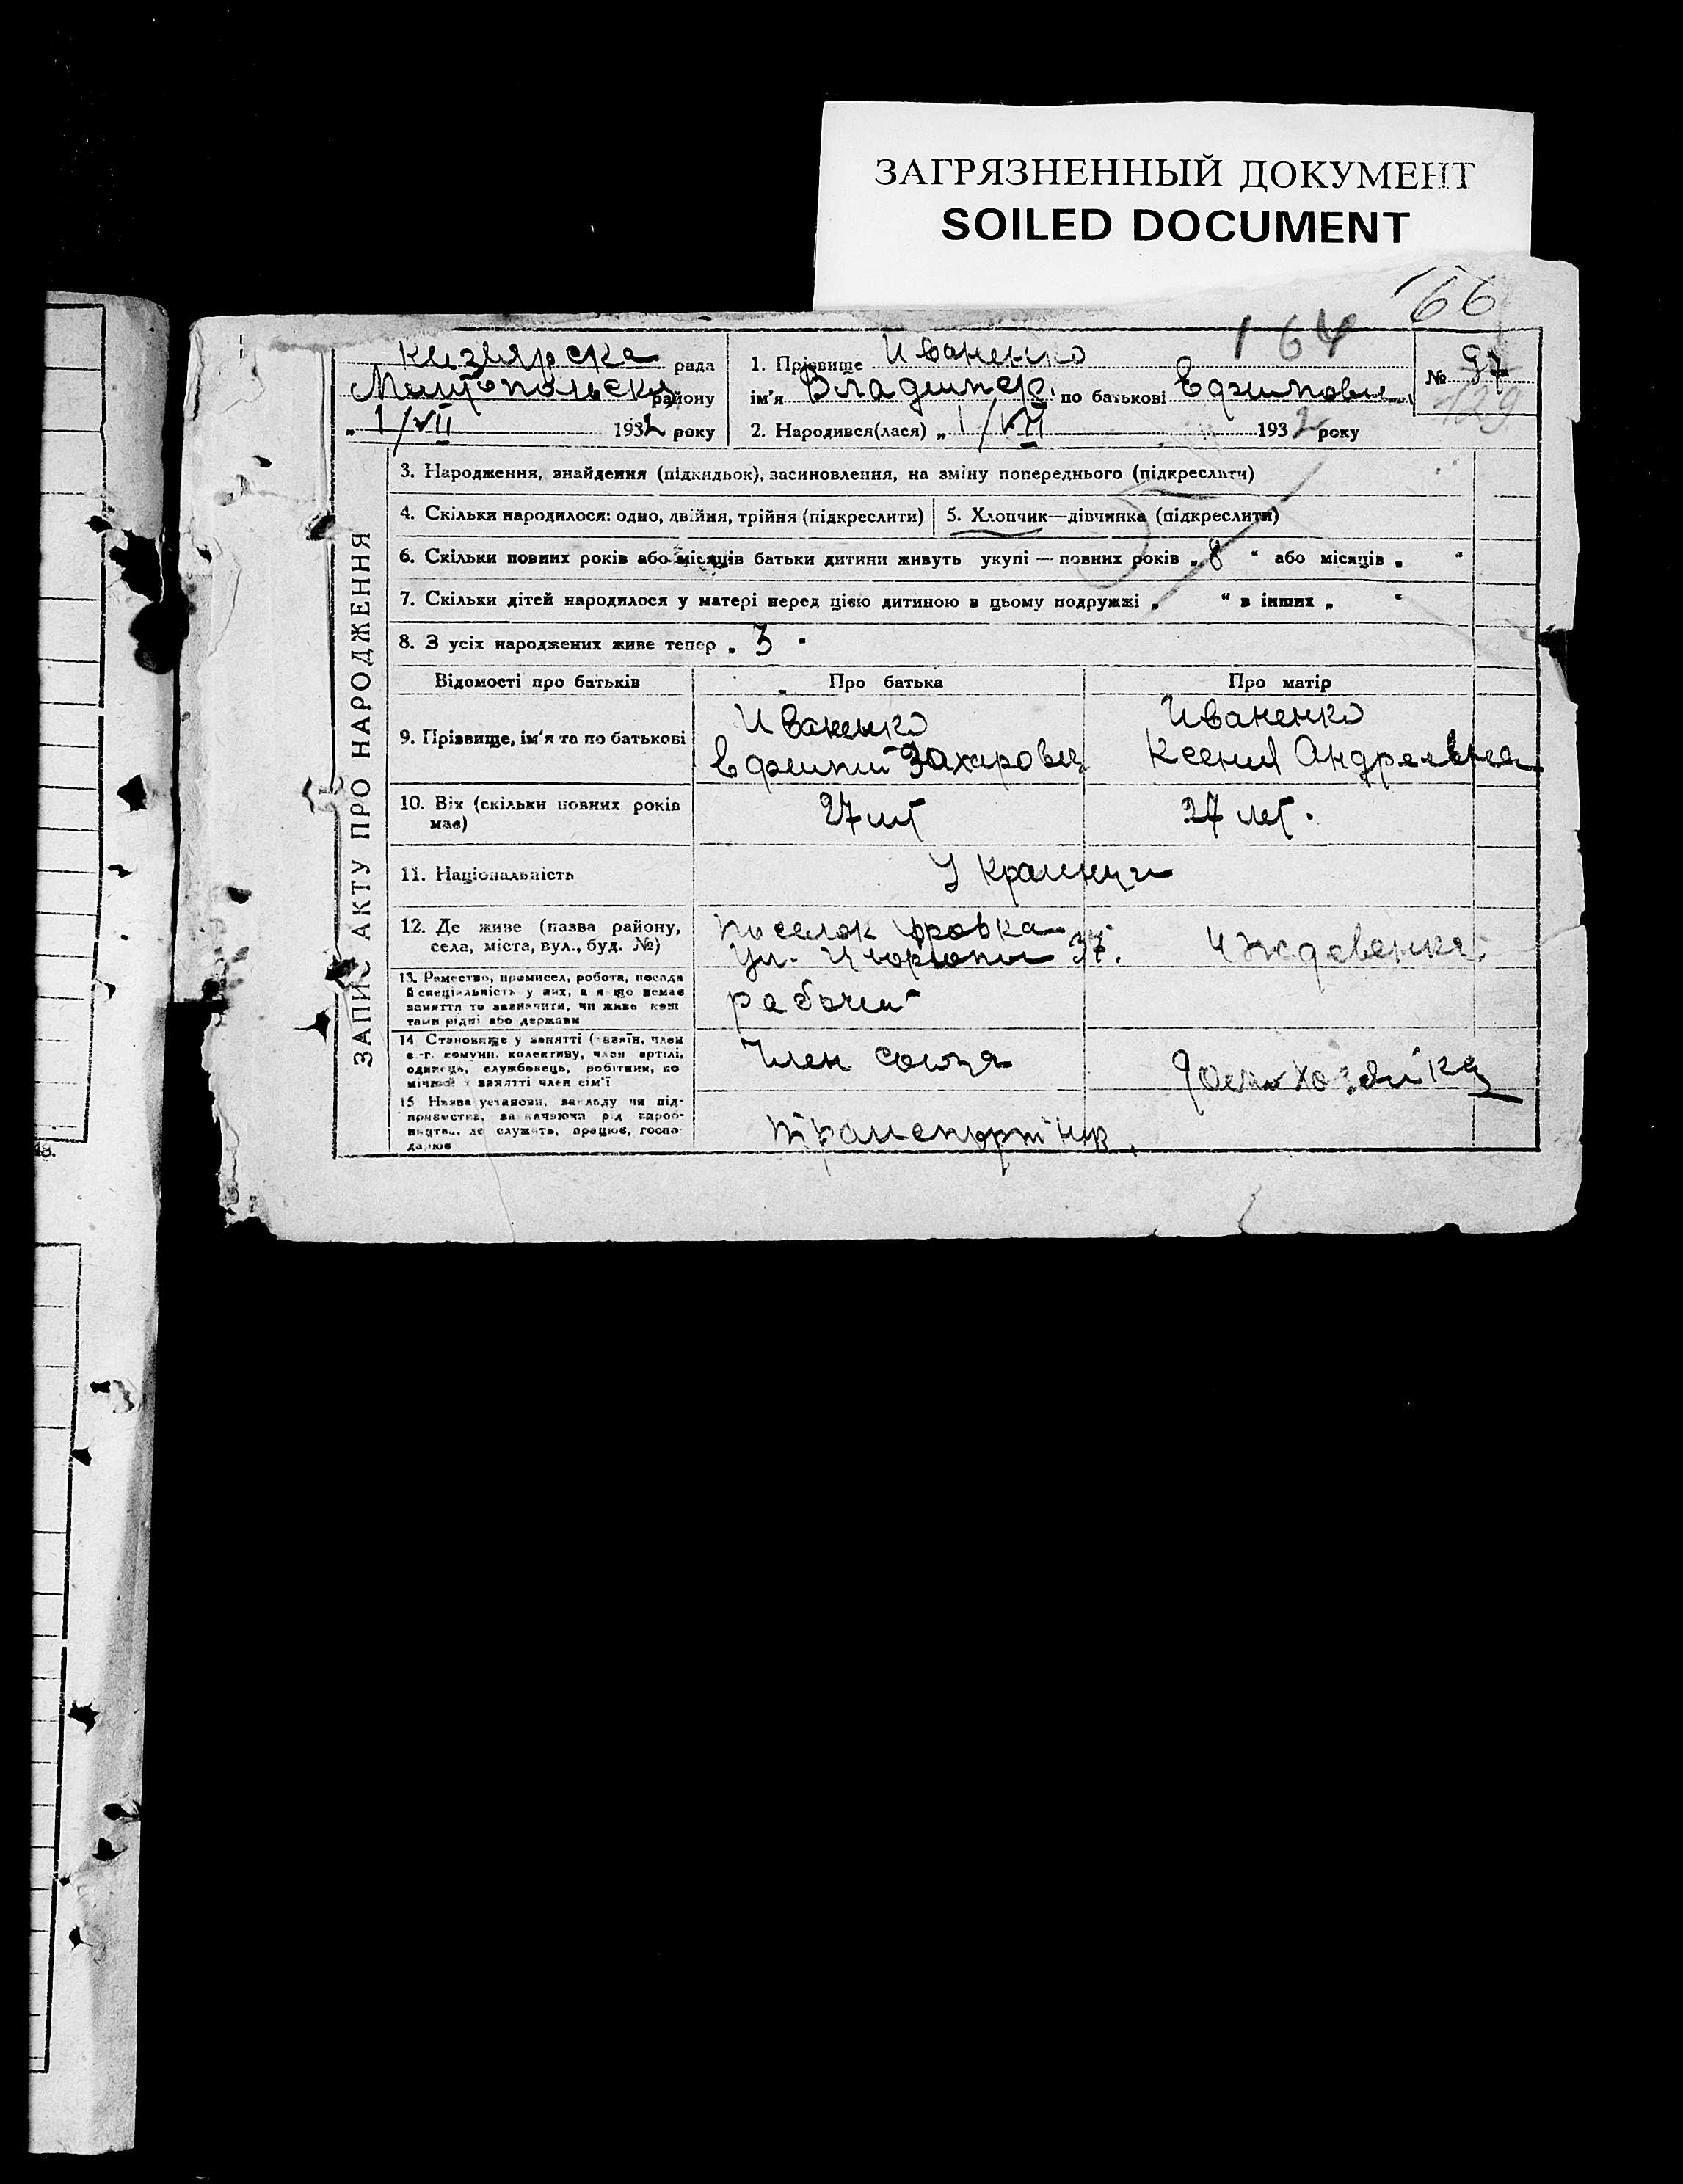 ЗАГРЯЗНЕННЫЙ ДОКУМЕНТ
SOILED DOCUMENT
66
164
Кизіярска рада
Мелітопольску району
„ 1/VII 1932 року
1. Прізвище Иваненко
ім'я Владимер. по батькові Ефимович
2. Народився(лася) „ 1/VII 1932 року
№ 97
129
ЗАПИС АКТУ ПРО НАРОДЖЕННЯ
3. Народження, знайдення (підкидьок), засиновлення, на зміну попереднього (підкреслити)
4. Скільки народилося: одно, двійня, трійня (підкреслити)
5. Хлопчик—дівчинка (підкреслити)
6. Скільки повних років або місяців батьки дитини живуть укупі — повних років „ 8 “ або місяців „ “
7. Скільки дітей народилося у матері перед цією дитиною в цьому подружжі „ “ в інших „ “
8. З усіх народжених живе тепер „ 3
Відомості про батьків
Про батька
Про матір
9. Прізвище, ім'я та по батькові
Иваненко
Ефимий Захарович
Иваненко
Ксения Андреевна
10. Вік (скільки повних років
має)
27 лет
27 лет.
11. Національність
Украинци
12. Де живе (назва району,
села, міста, вул., буд. №)
Поселок
ул. Цюрюпы 37.
Иждевенка
13. Ремество, промисел, робота, посада
й спеціяльність у них, а якщо немає
заняття то зазначити, чи живе кош
тами рідні або держави
рабочий
14 Становище у занятті (хазяїн, член
с.-г. комуни. колективу, член артілі,
одинець, службовець, робітник, по
мічний у занятті член сім'ї
член союза
домохозяйка
15 Назва установи, закладу чи під-
приємства, зазначаючи рід вироб-
ництва, де служить, працює, госпо-
дарює
транспортник